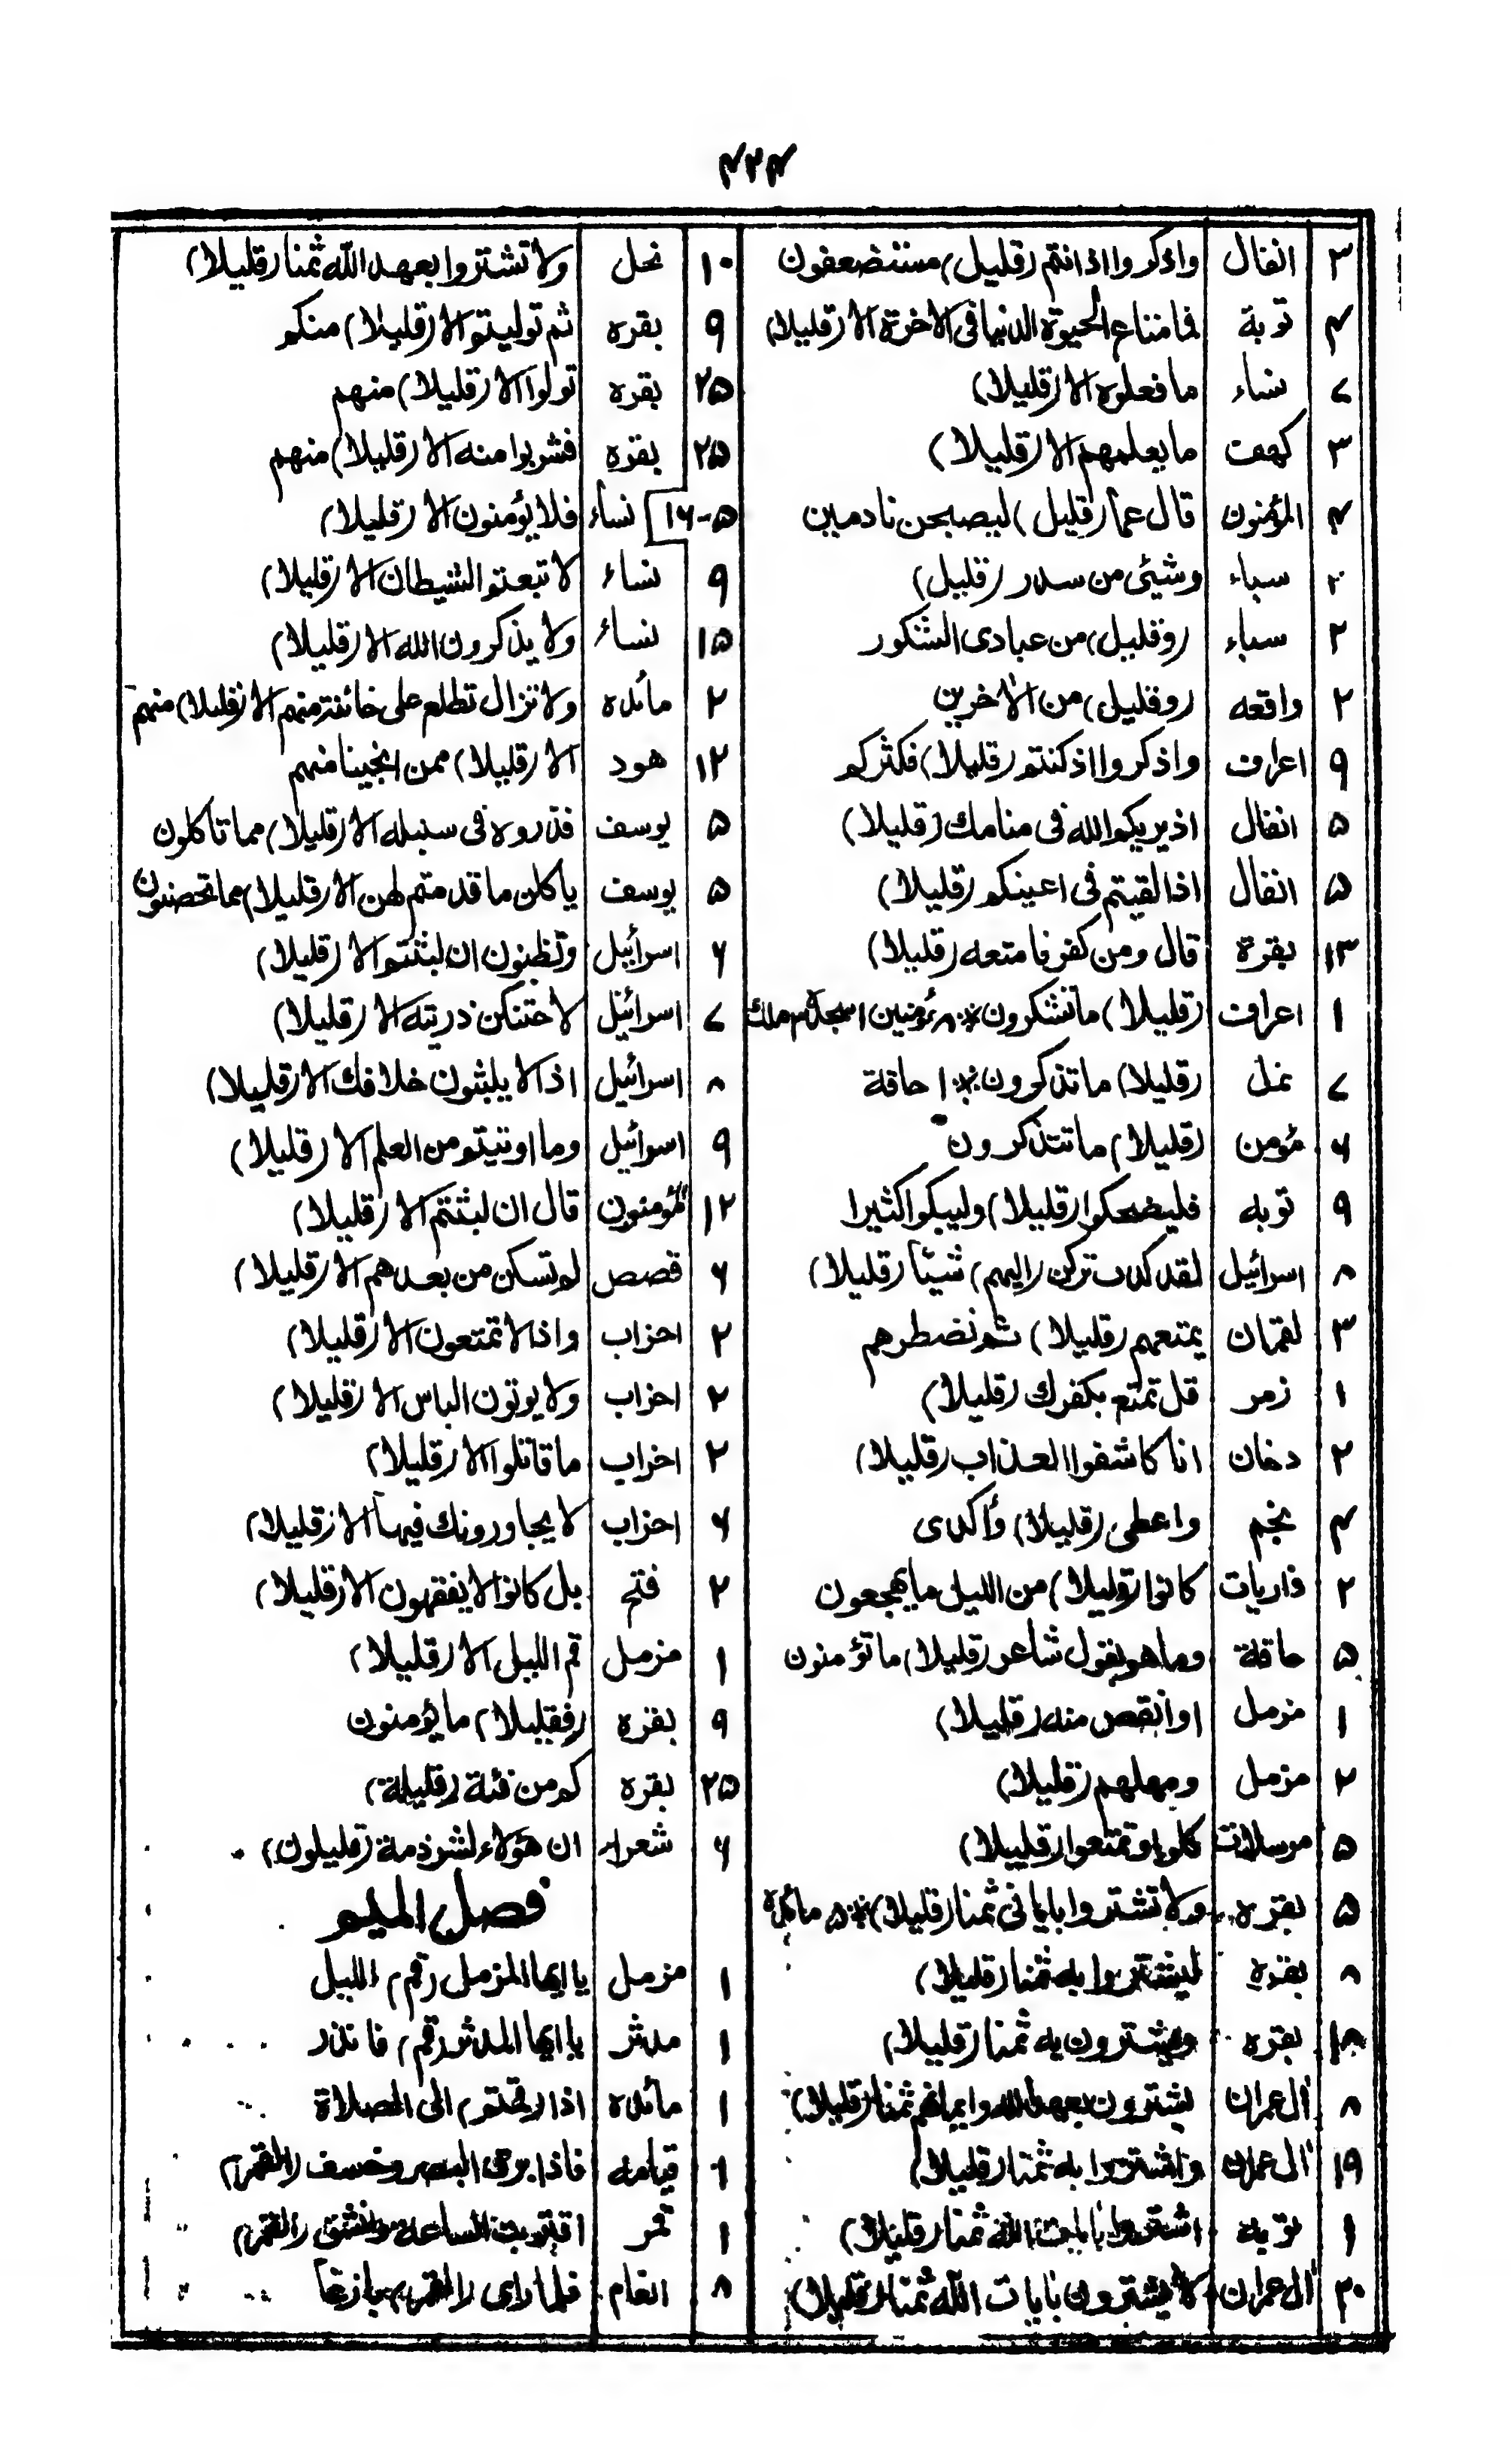 ۴۲۴
۳ انفال واذكروا اذ انتم (قليل) مستضعفون
۴ توبة فما متاع الحيوة الدنيا فى الاخرة الا (قليلا)
۷ نساء ما فعلوه الا (قليلا)
۳ كهف ما يعلمهم الا (قليلا)
۴ المؤمنون قال عما (قليل) ليصبحن نادمين
۲ سباء وشيئ من سدر (قليل)
۲ سباء (وقليل) من عبادى الشكور
۲ واقعه (وقليل) من الاخرين
۹ اعراف واذكروا اذ كنتم (قليلا) فكثركم
۵ انفال اذ يريكم الله فى منامك (قليلا)
۵ انفال اذا لقيتم فى اعينكم (قليلا)
۱۳ بقرة قال ومن كفر فامتعه (قليلا)
۱ اعراف (قليلا) ما تشكرون
۷ نمل (قليلا) ما تذكرون ۱ حاقة
۶ مؤمن (قليلا) ما تتذكرون
۹ توبه فليضحكوا (قليلا) وليبكوا كثيرا
۸ اسرائيل لقد كدت تركن (اليهم) شيئا (قليلا)
۳ لقمان يمتعهم (قليلا) ثم نضطرهم
۱ زمر قل تمتع بكفرك (قليلا)
۲ دخان انا كاشفوا العذاب (قليلا)
۴ نجم واعطى (قليلا) وأكدى
۲ ذاريات كانوا (قليلا) من الليل ما يهجعون
۵ حاقة وما هو بقول شاعر (قليلا) ما تؤمنون
۱ مزمل اوانقص منه (قليلا)
۲ مزمل ومهلهم (قليلا)
۵ مرسلات كلوا وتمتعوا (قليلا)
۵ بقره ولا تشتروا باياتى ثمنا (قليلا) ۵ مائده
۸ بقره ليشتروا به ثمنا (قليلا)
بقره ويشترون به ثمنا (قليلا)
۸ ال عمران يشترون بعهد الله وايمانهم ثمنا (قليلا)
۱۹ ال عمران واشتروا به ثمنا (قليلا)
توبه اشتروا بايات الله ثمنا (قليلا)
۲۰ ال عمران لا يشترون بايات الله ثمنا (قليلا)
۱۰ نحل ولا تشتروا بعهد الله ثمنا (قليلا)
۹ بقره ثم توليتو الا (قليلا) منكم
۲۵ بقره تولوا الا (قليلا) منهم
۲۵ بقره فشربوا منه الا (قليلا) منهم
۱۶-۵ نساء فلا يؤمنون الا (قليلا)
۹ نساء لا تبعتو الشيطان الا (قليلا)
۱۵ نساء ولا يذكرون الله الا (قليلا)
۲ مائده ولا تزال تطلع على خائنة منهم الا (قليلا) منهم
۱۲ هود الا (قليلا) ممن انجينا منهم
۵ يوسف فذروه فى سنبله الا (قليلا) مما تاكلون
۵ يوسف ياكلن ما قدمتم لهن الا (قليلا) مما تحصنون
۶ اسرائيل وتظنون ان لبثتم الا (قليلا)
۷ اسرائيل لاحتنكن ذريته الا (قليلا)
۸ اسرائيل اذا لا يلبثون خلافك الا (قليلا)
۹ اسرائيل وما اوتيتو من العلم الا (قليلا)
۱۲ المؤمنون قال ان لبثتم الا (قليلا)
۶ قصص لم تسكن من بعدهم الا (قليلا)
۲ احزاب واذا لا تمتعون الا (قليلا)
۲ احزاب ولا يوتون الباس الا (قليلا)
۲ احزاب ما قاتلوا الا (قليلا)
۶ احزاب لا يجاورونك فيها الا (قليلا)
۲ فتح بل كانوا لا يفقهون الا (قليلا)
۱ مزمل قم الليل الا (قليلا)
۹ بقره (فقليلا) ما يؤمنون
۲۵ بقره كم من فئة (قليلة)
۶ شعراء ان هؤلاء لشرذمة (قليلون)
فصل الميم
۱ مزمل يا ايها المزمل (قم) الليل
۱ مدثر يا ايها المدثر (قم) فانذر
۱ مائده اذا (قمتم) الى الصلاة
۱ قيامه فاذا برق البصر وخسف (القمر)
۱ قمر اقتربت الساعة وانشق (القمر)
۸ انعام فلما راى (القمر) بازغا